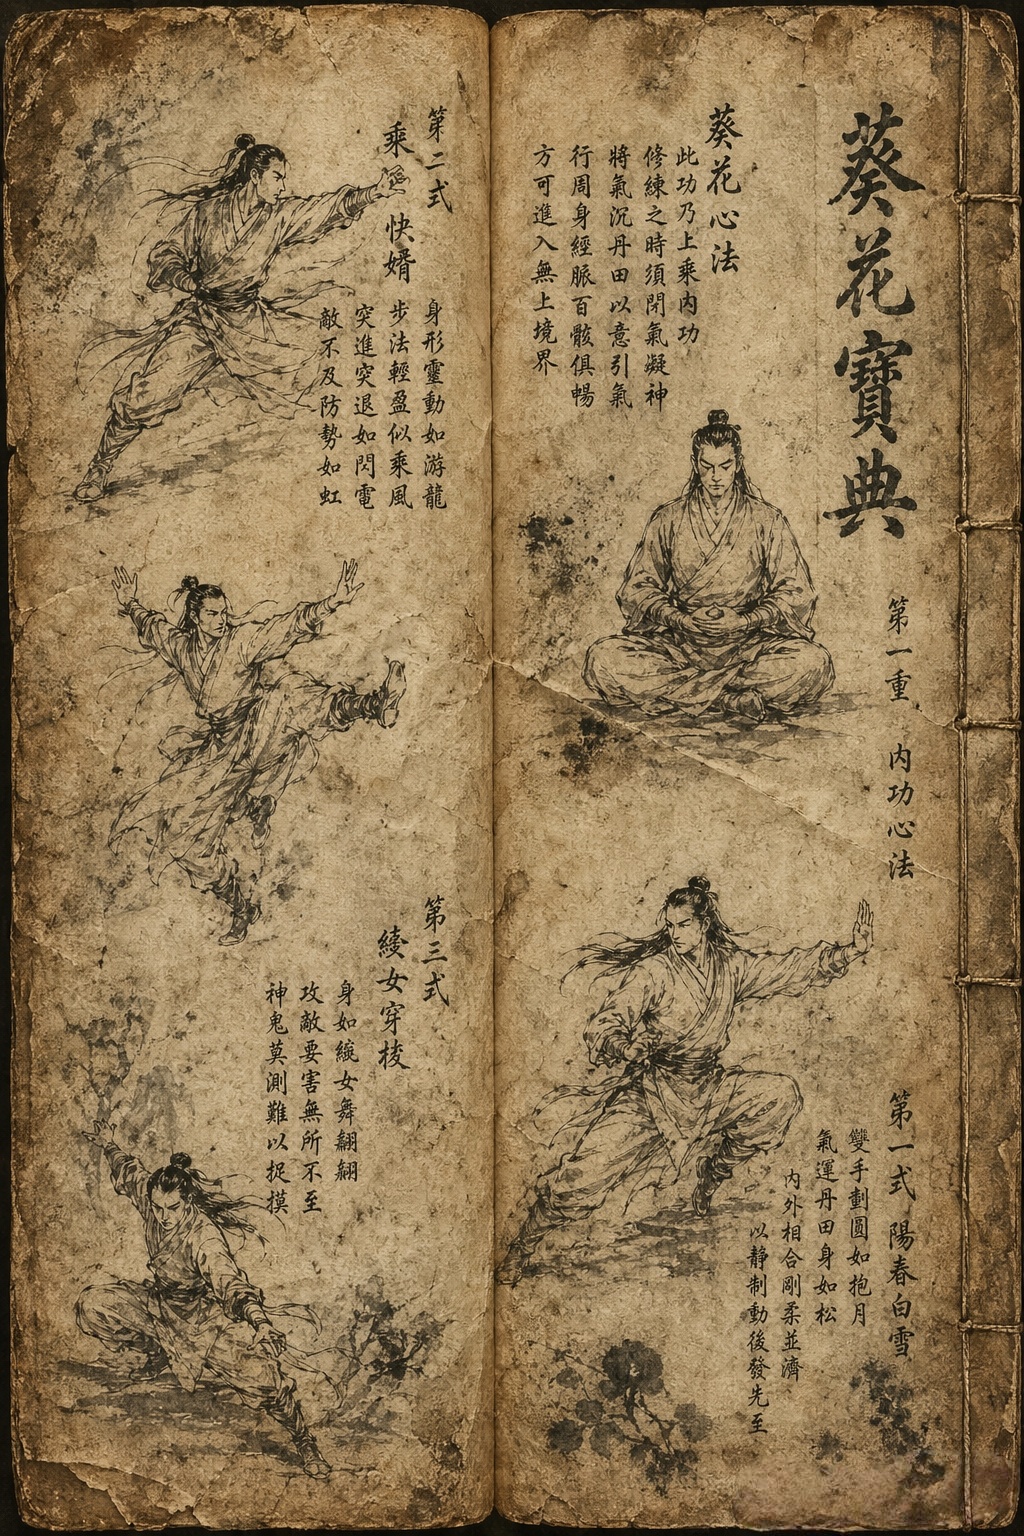 葵花寶典
第一重 內功心法
葵花心法
此功乃上乘內功
修練之時須閉氣凝神
將氣沉丹田以意引氣
行周身經脈百骸俱暢
方可進入無上境界
第一式 陽春白雪
雙手劃圓如抱月
氣運丹田身如松
內外相合剛柔並濟
以靜制動後發先至
第二式
乘 快婿
身形靈動如游龍
步法輕盈似乘風
突進突退如閃電
敵不及防勢如虹
第三式
女穿梭
身如 女舞翩翩
攻敵要害無所不至
神鬼莫測難以捉摸